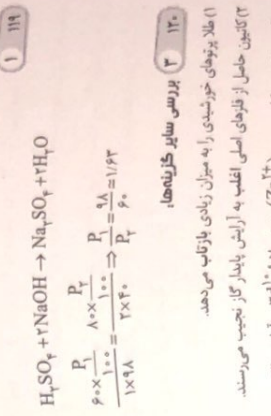 ۱۱۹ ۱
H₂SO₄ + ۲NaOH → Na₂SO₄ + ۲H₂O
(۶۰ × P₁/۱۰۰)/(۱×۹۸) = (۸۰ × P₂/۱۰۰)/(۲×۴۰) ⇒ P₁/P₂ = ۹۸/۶۰ = ۱/۶۳
۱۲۰ ۳ بررسی سایر گزینه‌ها:
۱) طلا پرتوهای خورشیدی را به میزان زیادی بازتاب می‌دهد.
۲) کاتیون حاصل از فلزهای اصلی اغلب به آرایش پایدار گاز نجیب می‌رسند.